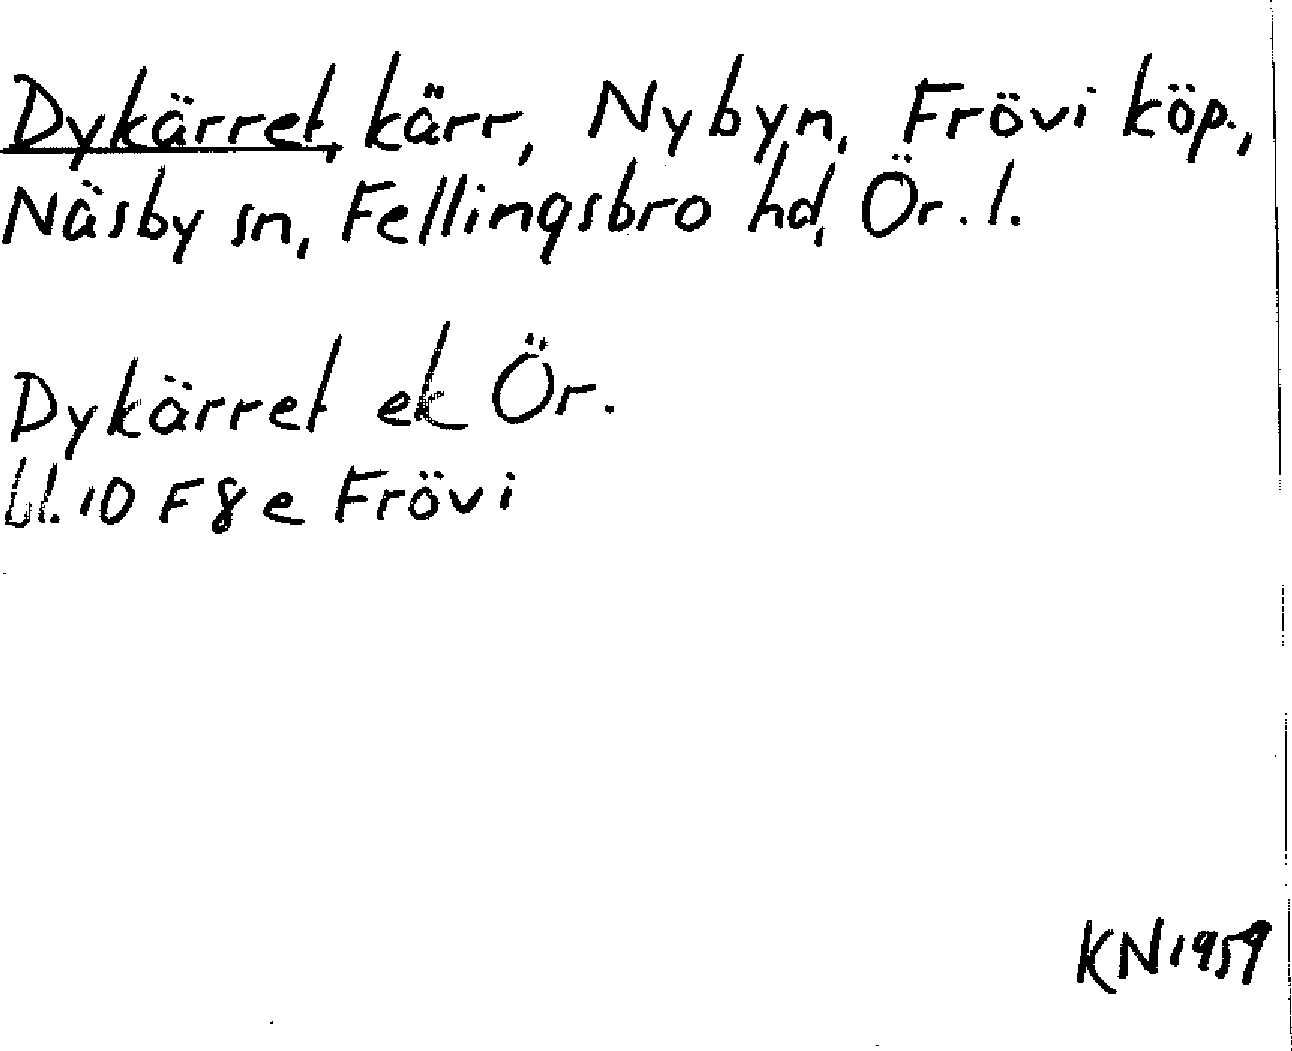 Dykärret, kärr, Nybyn, Frövi köp.,
Näsby sn, Fellingsbro hd, Ör. l.
Dykärret ek Ör.
bl. 10 F 8 e Frövi
KN 1959